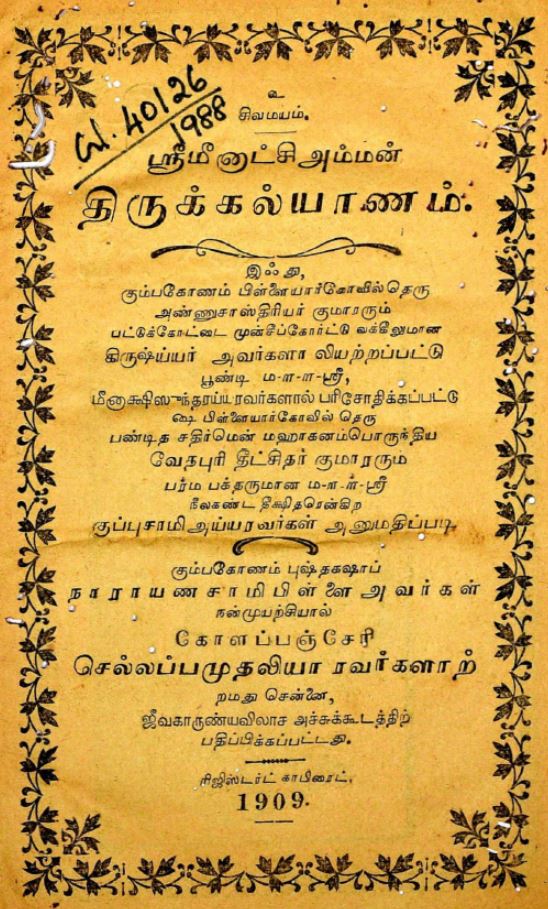 உ
சிவமயம்.
ஸ்ரீமீனாட்சி அம்மன்
திருக்கல்யாணம்.
இஃது,
கும்பகோணம் பிள்ளையார்கோவில் தெரு
அண்ணுசாஸ்திரியர் குமாரரும்
பட்டுக்கோட்டை முன்சீப்கோர்ட்டு வக்கீலுமான
கிருஷ்ய்யர் அவர்களா லியற்றப்பட்டு
பூண்டி ம-ள-ள-ஸ்ரீ,
மீனாக்ஷிஸுந்தரய்யரவர்களால் பரிசோதிக்கப்பட்டு
ஷை பிள்ளையார்கோவில் தெரு
பண்டித சதிர்மென் மஹாகனம்பொருந்திய
வேதபுரி தீட்சிதர் குமாரரும்
பர்ம பக்தருமான ம-ள-ள்-ஸ்ரீ
நீலகண்ட தீக்ஷிதரென்கிற
குப்புசாமி அய்யரவர்கள் அனுமதிப்படி
கும்பகோணம் புஷ்தகஷாப்
நாராயணசாமிபிள்ளை அவர்கள்
நன்முயற்சியால்
கோளப்பஞ்சேரி
செல்லப்பமுதலியா ரவர்களாற்
றமது சென்னை,
ஜீவகாருண்யவிலாச அச்சுக்கூடத்திற்
பதிப்பிக்கப்பட்டது.
ரிஜிஸ்டர்ட் காபிரைட்.
1909.
40126
1988